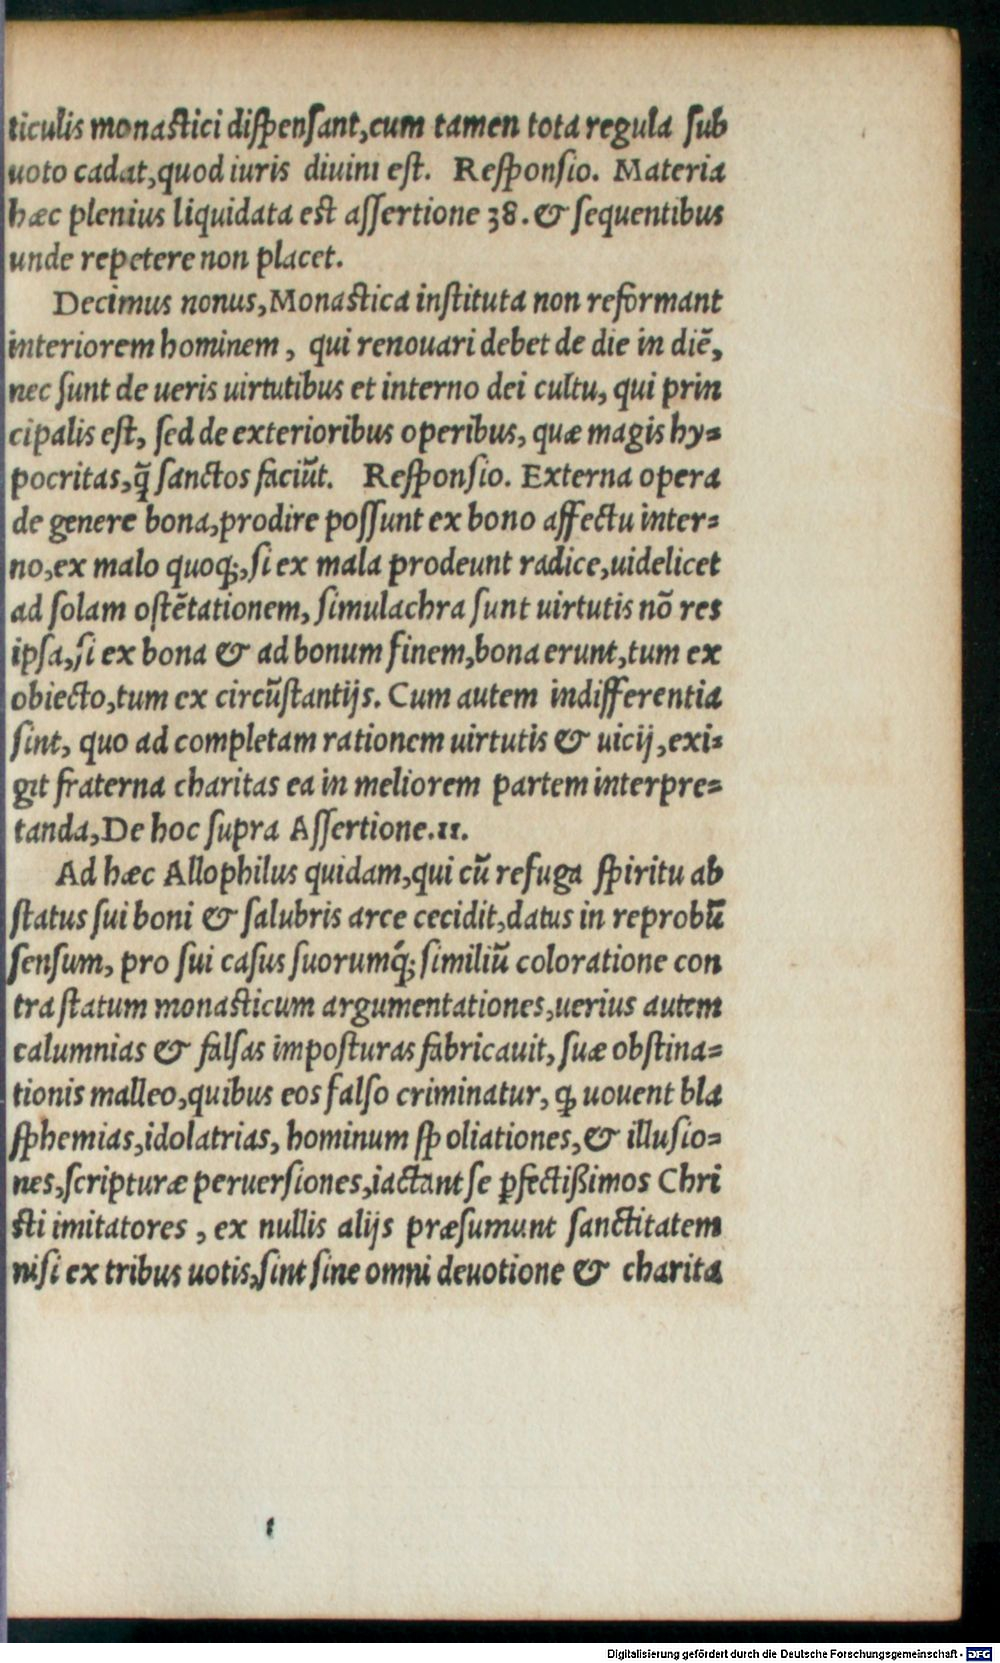 ticulis monastici dispensant,cum tamen tota regula sub
uoto cadat,quod iuris diuini est. Responsio. Materia
hæc plenius liquidata est assertione 38. & sequentibus
unde repetere non placet.
Decimus nonus,Monastica instituta non reformant
interiorem hominem , qui renouari debet de die in diē,
nec sunt de ueris uirtutibus et interno dei cultu, qui prin
cipalis est, sed de exterioribus operibus, quæ magis hy=
pocritas,q̄ sanctos faciūt. Responsio. Externa opera
de genere bona,prodire possunt ex bono affectu inter=
no,ex malo quoq;,si ex mala prodeunt radice,uidelicet
ad solam ostētationem, simulachra sunt uirtutis nō res
ipsa,si ex bona & ad bonum finem,bona erunt,tum ex
obiecto,tum ex circūstantijs. Cum autem indifferentia
sint, quo ad completam rationem uirtutis & uicij,exi=
git fraterna charitas ea in meliorem partem interpre=
tanda,De hoc supra Assertione.11.
Ad hæc Allophilus quidam,qui cū refuga spiritu ab
status sui boni & salubris arce cecidit,datus in reprobū
sensum, pro sui casus suorumq́; similiū coloratione con
tra statum monasticum argumentationes,uerius autem
calumnias & falsas imposturas fabricauit, suæ obstina=
tionis malleo,quibus eos falso criminatur, ꝙ uouent bla
sphemias,idolatrias, hominum spoliationes,& illusio=
nes,scripturæ peruersiones,iactant se ꝑfectißimos Chri
sti imitatores , ex nullis alijs præsumunt sanctitatem
nisi ex tribus uotis,sint sine omni deuotione & charita
Digitalisierung gefördert durch die Deutsche Forschungsgemeinschaft - DFG